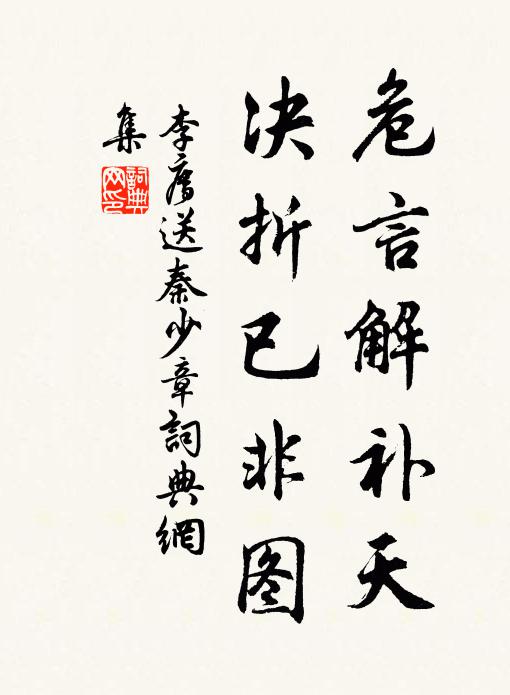 危言解补天
决折已非图
李廌送秦少章詞典網
集
詞典
网印